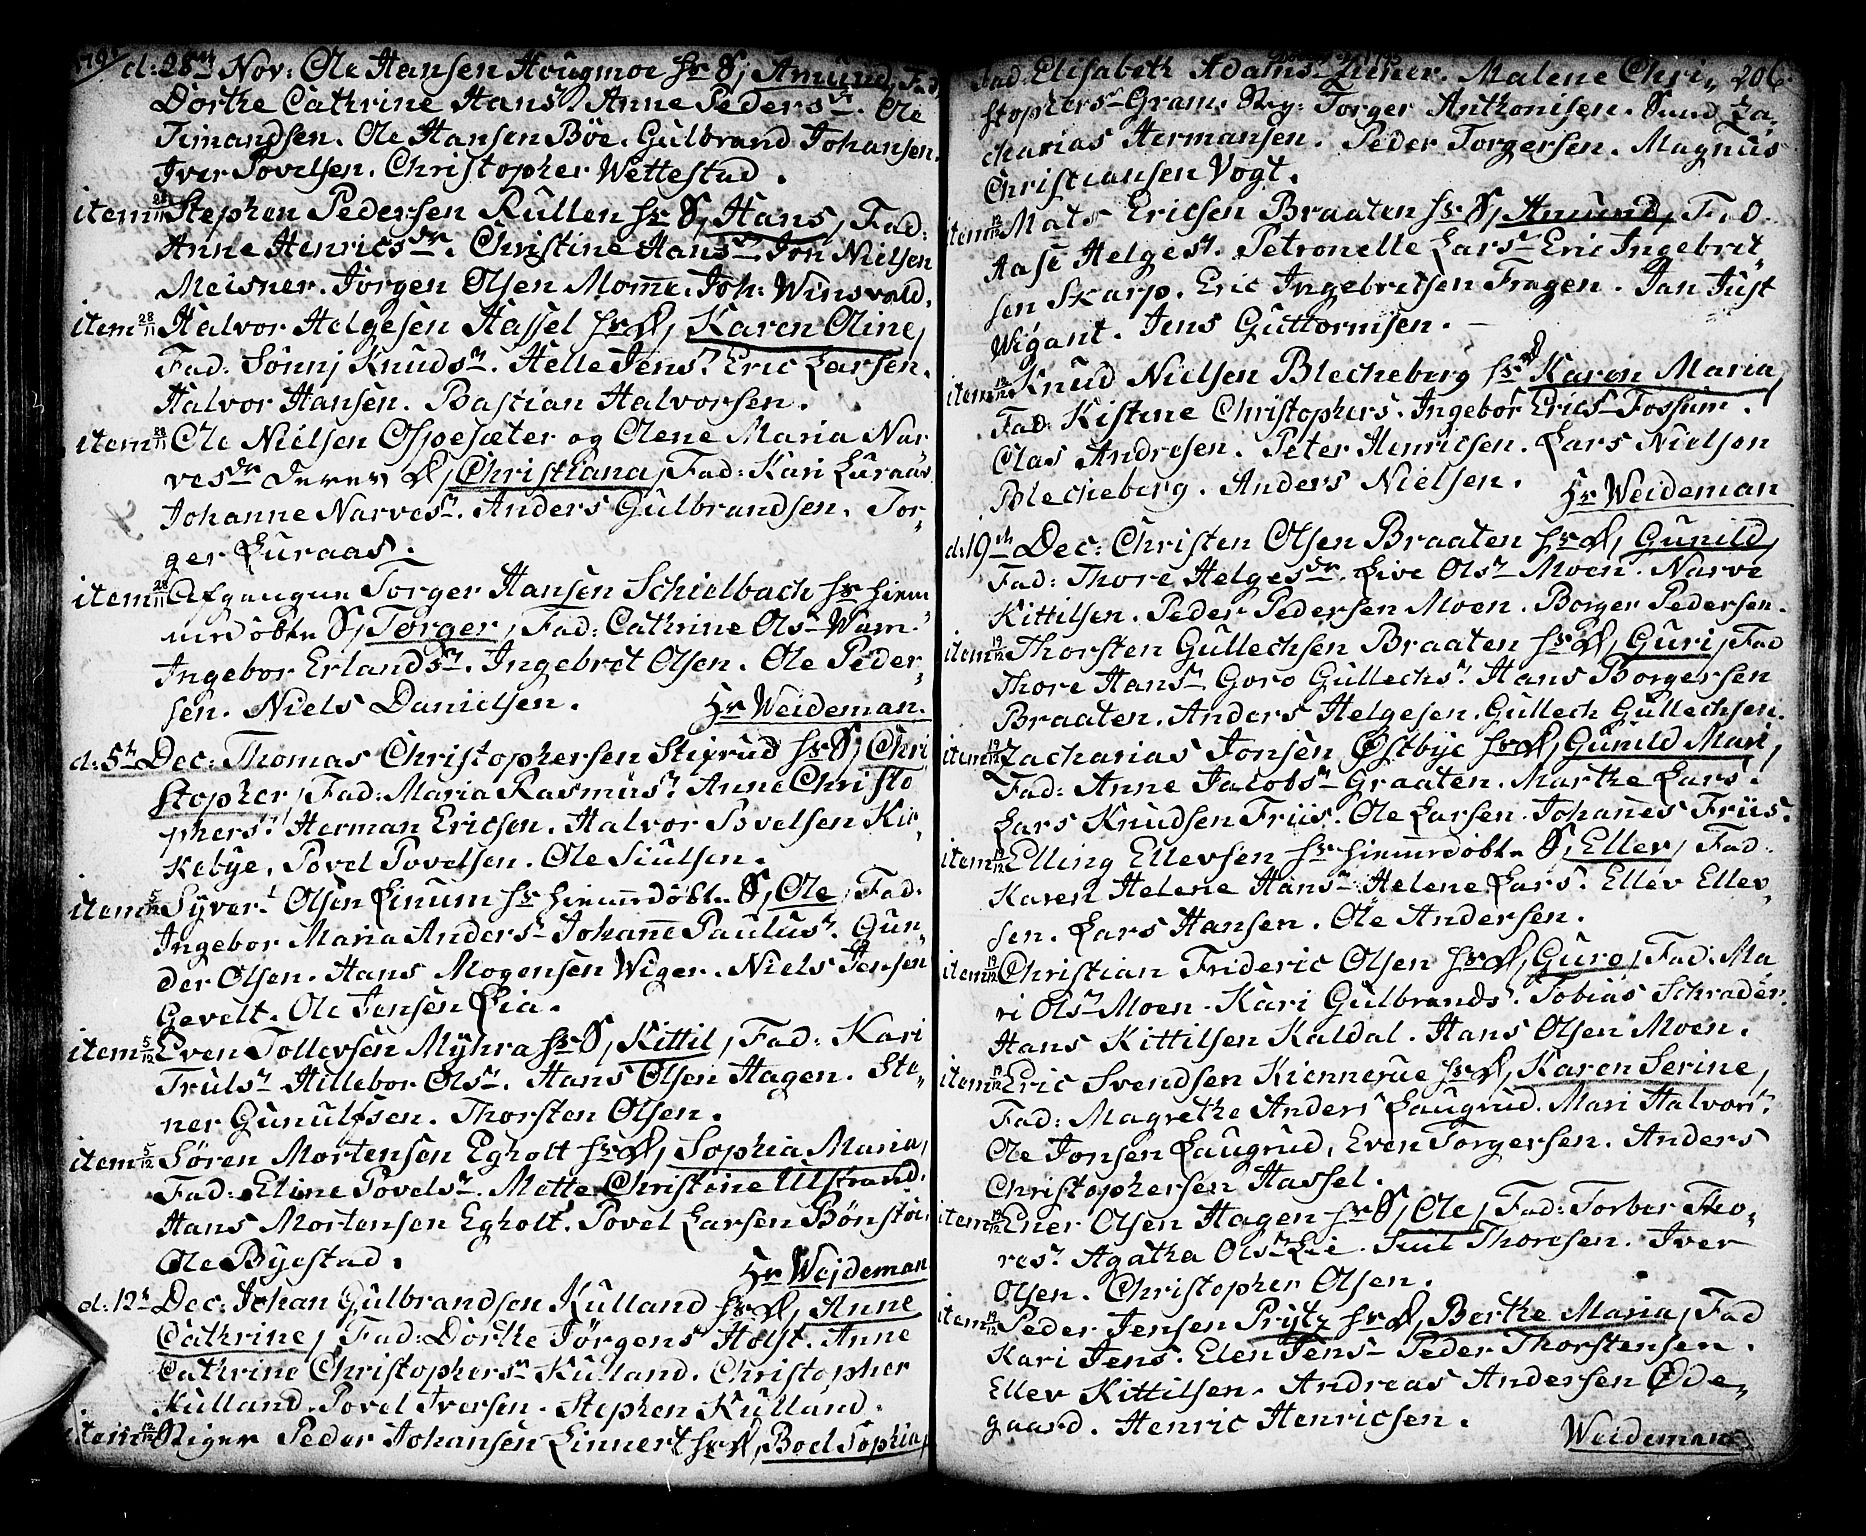 d: 28de Nov: Ole Hansen Hougmoe hs S, Amund, Fad,
Dorthe Cathrine Hansd. Anne Pedersdr. Ole
Timandsen. Ole Hansen Böe. Gulbrand Johansen.
Iver Povelsen. Christopher Wettestad.
item 28/11 Stephen Pedersen Rullen hs S, Hans, Fad:
Anne Henricsdr. Christine Hansdr. Jon Nielsen
Meisner. Jörgen Olsen Mom̅e. Joh: Winsvold.
item 28/11 Halvor Helgesen Hassel hs D, Karen Oline,
Fad: Sönnj Knudsdr. Helle Jensd. Eric Larsen.
Halvor Hansen. Bastian Halvorsen.
item 28/11 Ole Nielsen Ospesæter og Olene Maria Nar
vesdr deres D, Christiana, Fad: Kari Luraas
Johanne Narvesdr. Anders Gulbrandsen. Tor-
ger Luraas.
item 28/11 Afgangne Torger Hansen Schielbach hs hiem
medöbte S, Torger, Fad: Cathrine Olsdr Wam-
Ingebor Erlandsdr. Ingebret Olsen. Ole Peder-
sen. Niels Danielsen. Hr Weideman.
d: 5t Dec: Thomas Christophersen Stifrud hs S, Chri
stopher, Fad: Maria Rasmusd. Anne Christo
phersd. Herman Ericsen. Halvor Povelsen Kir-
kebye. Povel Povelsen. Ole Siulsen.
item 5/12 Syvert Olsen Linum hs hiemmedöbte S, Ole, Fad:
Ingebor Maria Andersd Johan̅e Paulusd. Gun-
der Olsen. Hans Mogensen Wiger. Niels Jensen
Gevelt. Ole Jensen Lia.
item 5/12 Even Tollevsen Myhra hs S, Kittil, Fad: Kari
Trulsd Hillebor Olsd. Hans Olsen Hagen. Ste-
ner Gunulfsen. Thorsten Olsen.
item 5/12 Sören Mortensen Egholt hs D, Sophia Maria,
Fad: Eline Povelsd. Mette Christine Ulstrand.
Hans Mortensen Egholt. Povel Larsen Bönstöe.
Ole Byestad.
Hr Weideman
d: 12t Dec: Johan Gulbrandsen Kulland hs D, Anne
Cathrine, Fad: Dorthe Jörgens Holst. Anne
Cathrine Christophersdr Kulland. Christopher
Kulland. Povel Iversen. Stephen Kulland.
item 12/12 Peder Johansen Linnert hs D, Boel Sophia,
206.
Fad: Elisabeth Adams Malene Chri-
stophersd Gram. Torger Anthonisen. Za-
charias Hermansen. Peder Torgersen. Magnus
Christiansen Vogt.
item 12/12 Mats Ericsen Braaten hs S, Amund, Fad
Aase Helgesd. Petronelle Larsd Eric Ingebret
sen Skarp. Eric Ingebretsen Fragen. Jan Just
Wigant. Jens Guttormsen.
item 12/12 Knud Nielsen Blecheberg hs D Karen Maria,
Fad: Kistine Christophers. Ingebor Erics Fossum.
Clas Andresen. Peter Henricsen. Lars Nielsen
Blecheberg. Anders Nielsen. Hr Weideman
d: 19de Dec: Christen Olsen Braaten hs D, Gunild,
Fad: Thore Helgesdr. Live Olsd Moen. Narve
Kittilsen. Peder Pedersen Moen. Borger Pedersen.
item 19/12 Thorsten Gullechsen Braaten hs D, Guri, Fad
Thore Hansd Goro Gullechsd. Hans Borgersen
Braaten. Anders Helgesen. Gullech Gullechsen.
item 19/12 Zacharias Jonsen Östbye hs D, Gunild Mari,
Fad: Anne Jacobsd Graaten. Marthe Larsd.
Lars Knudsen Friis. Ole Larsen Johannes Friis.
item 19/12 Elling Ellevsen hs hiemmedöbte S, Ellev, Fad.
Karen Helene Hansd Helene Larsd. Ellev Ellev-
sen. Lars Hansen. Ole Andersen.
item 19/12 Christian Frideric Olsen hs D, Gure, Fad: Ma
ri Olsd Moen. Kari Gulbrandsd. Tobias Schrader.
Hans Kittilsen Kaldal. Hans Olsen Moen.
item 19/12 Eric Svendsen Kiennerue hs D, Karen Serine,
Fad: Magrethe Andersd Laugrud. Mari Halvorsd.
Ole Jonsen Laugrud, Even Torgersen. Anders
Christophersen Hassel.
item 19/12 Ener Olsen Hagen hs S, Ole, Fad: Torber Tho-
resd. Agatha Olsdr Lie. Siul Thoresen. Iver
Olsen. Christopher Olsen.
item 19/12 Peder Jensen Prijtz hs D, Berthe Maria, Fad
Kari Jensd. Elen Jensd Peder Thorstensen.
Ellev Kittilsen. Andreas Andersen Øde-
gaard. Henric Henricsen.
Weideman